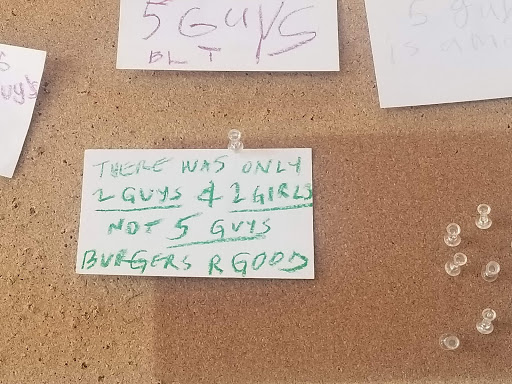 5 GUYS
BLT
uy's
5 guy
is
THERE WAS ONLY
2 GUYS & 2 GIRLS
NOT 5 GUYS
BURGERS R GOOD